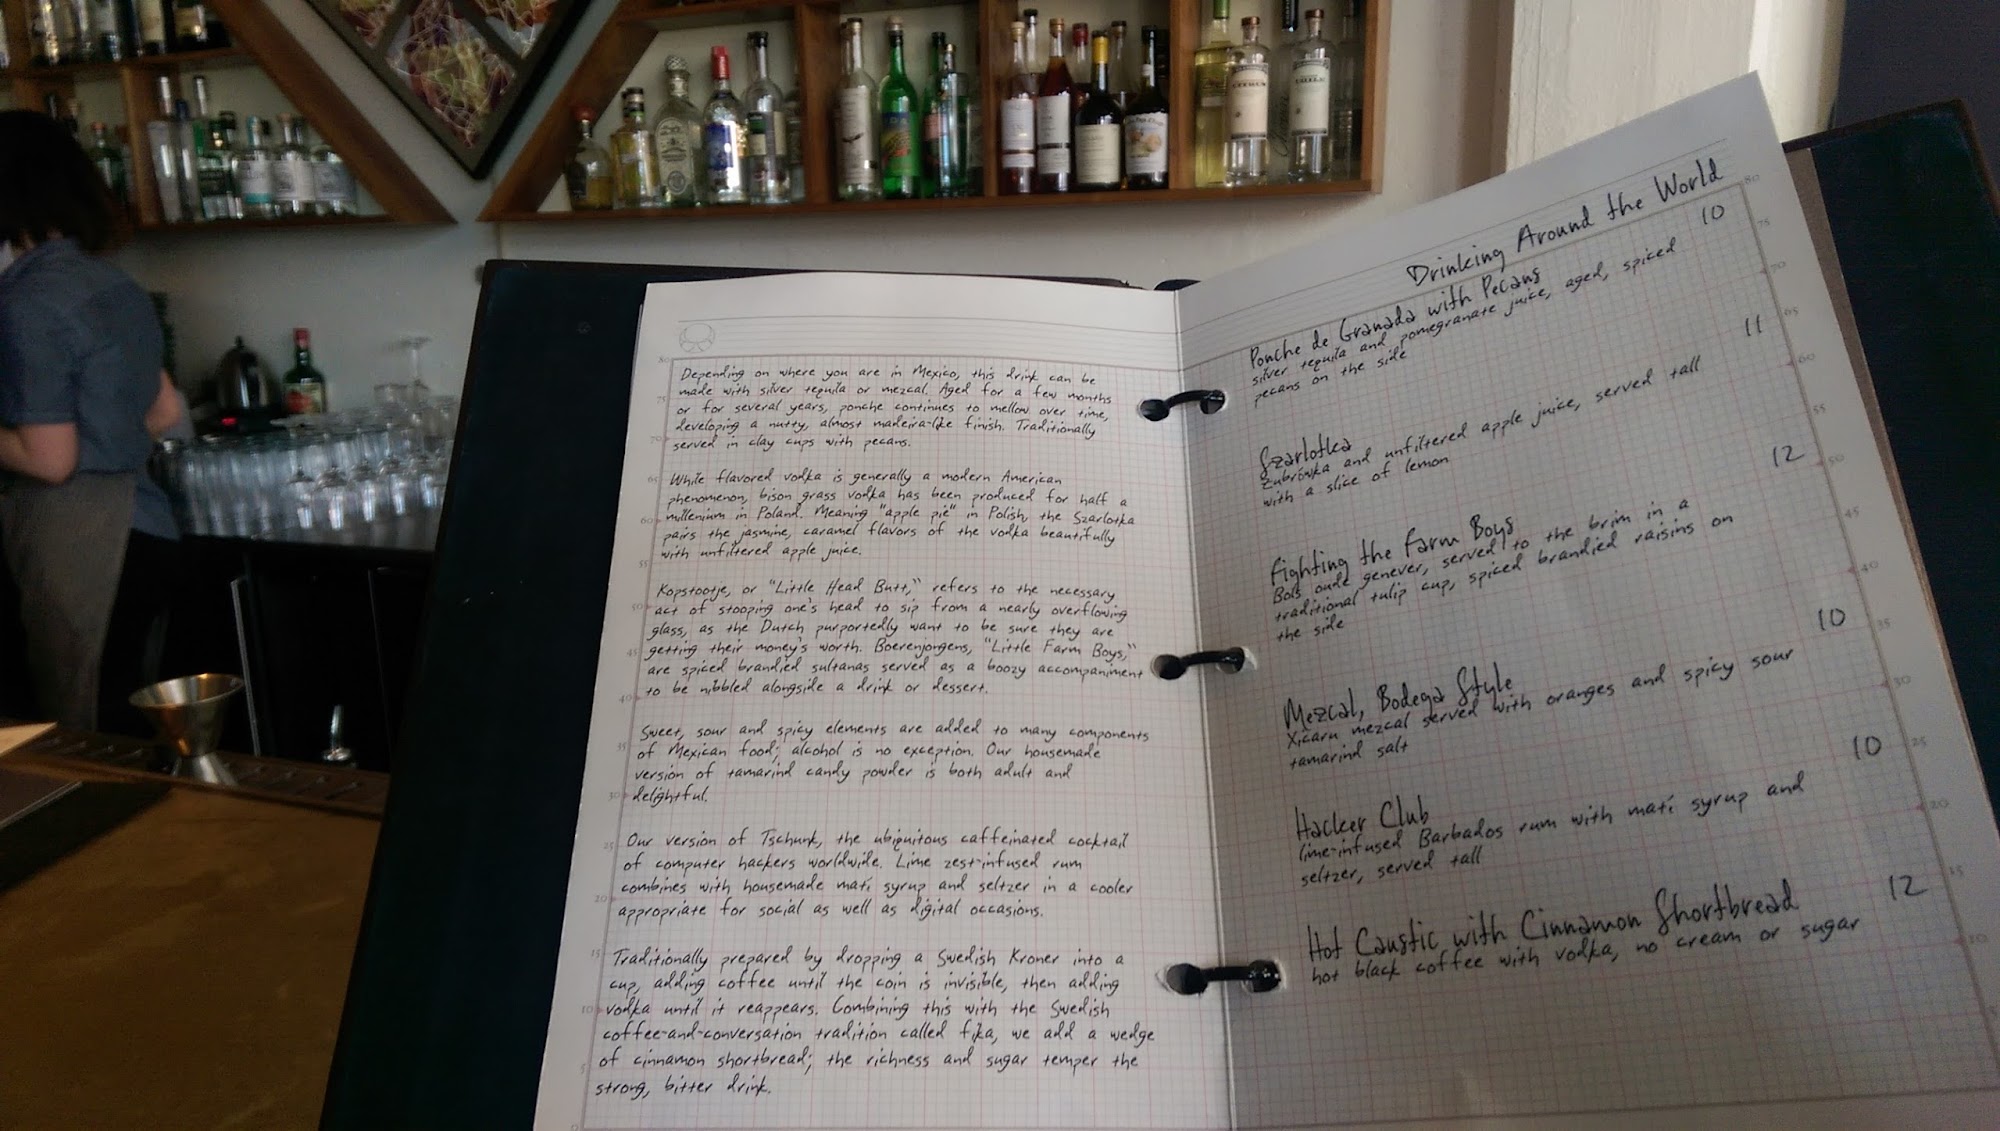 Depending on where you are in Mexico, this drink can be
made with silver tequila or mezcal. Aged for a few months
or for several years, ponche continues to mellow over time,
developing a nutty, almost madeira-like finish. Traditionally
served in clay cups with pecans.
While flavored vodka is generally a modern American
phenomenon, bison grass vodka has been produced for half a
millenium in Poland. Meaning "apple pie" in Polish, the Szarlotka
pairs the jasmine, caramel flavors of the vodka beautifully
with unfiltered apple juice.
Kopstootje, or "Little Head Butt," refers to the necessary
act of stooping one's head to sip from a nearly overflowing
glass, as the Dutch purportedly want to be sure they are
getting their money's worth. Boerenjongens, "Little Farm Boys,"
are spiced brandied sultanas served as a boozy accompaniment
to be nibbled alongside a drink or dessert.
Sweet, sour and spicy elements are added to many components
of Mexican food; alcohol is no exception. Our housemade
version of tamarind candy powder is both adult and
delightful.
Our version of Tschunk, the ubiquitous caffeinated cocktail
of computer hackers worldwide. Lime zest-infused rum
combines with housemade maté syrup and seltzer in a cooler
appropriate for social as well as digital occasions.
Traditionally prepared by dropping a Swedish Kroner into a
cup, adding coffee until the coin is invisible, then adding
vodka until it reappears. Combining this with the Swedish
coffee-and-conversation tradition called fika, we add a wedge
of cinnamon shortbread; the richness and sugar temper the
strong, bitter drink.
Drinking Around the World
Ponche de Granada with Pecans 10
silver tequila and pomegranate juice, aged, spiced
pecans on the side
Szarlotka 11
Żubrówka and unfiltered apple juice, served tall
with a slice of lemon
Fighting the Farm Boys 12
Bols oude genever, served to the brim in a
traditional tulip cup, spiced brandied raisins on
the side
Mezcal, Bodega Style 10
Xicaru mezcal served with oranges and spicy sour
tamarind salt
Hacker Club 10
lime-infused Barbados rum with maté syrup and
seltzer, served tall
Hot Caustic with Cinnamon Shortbread 12
hot black coffee with vodka, no cream or sugar